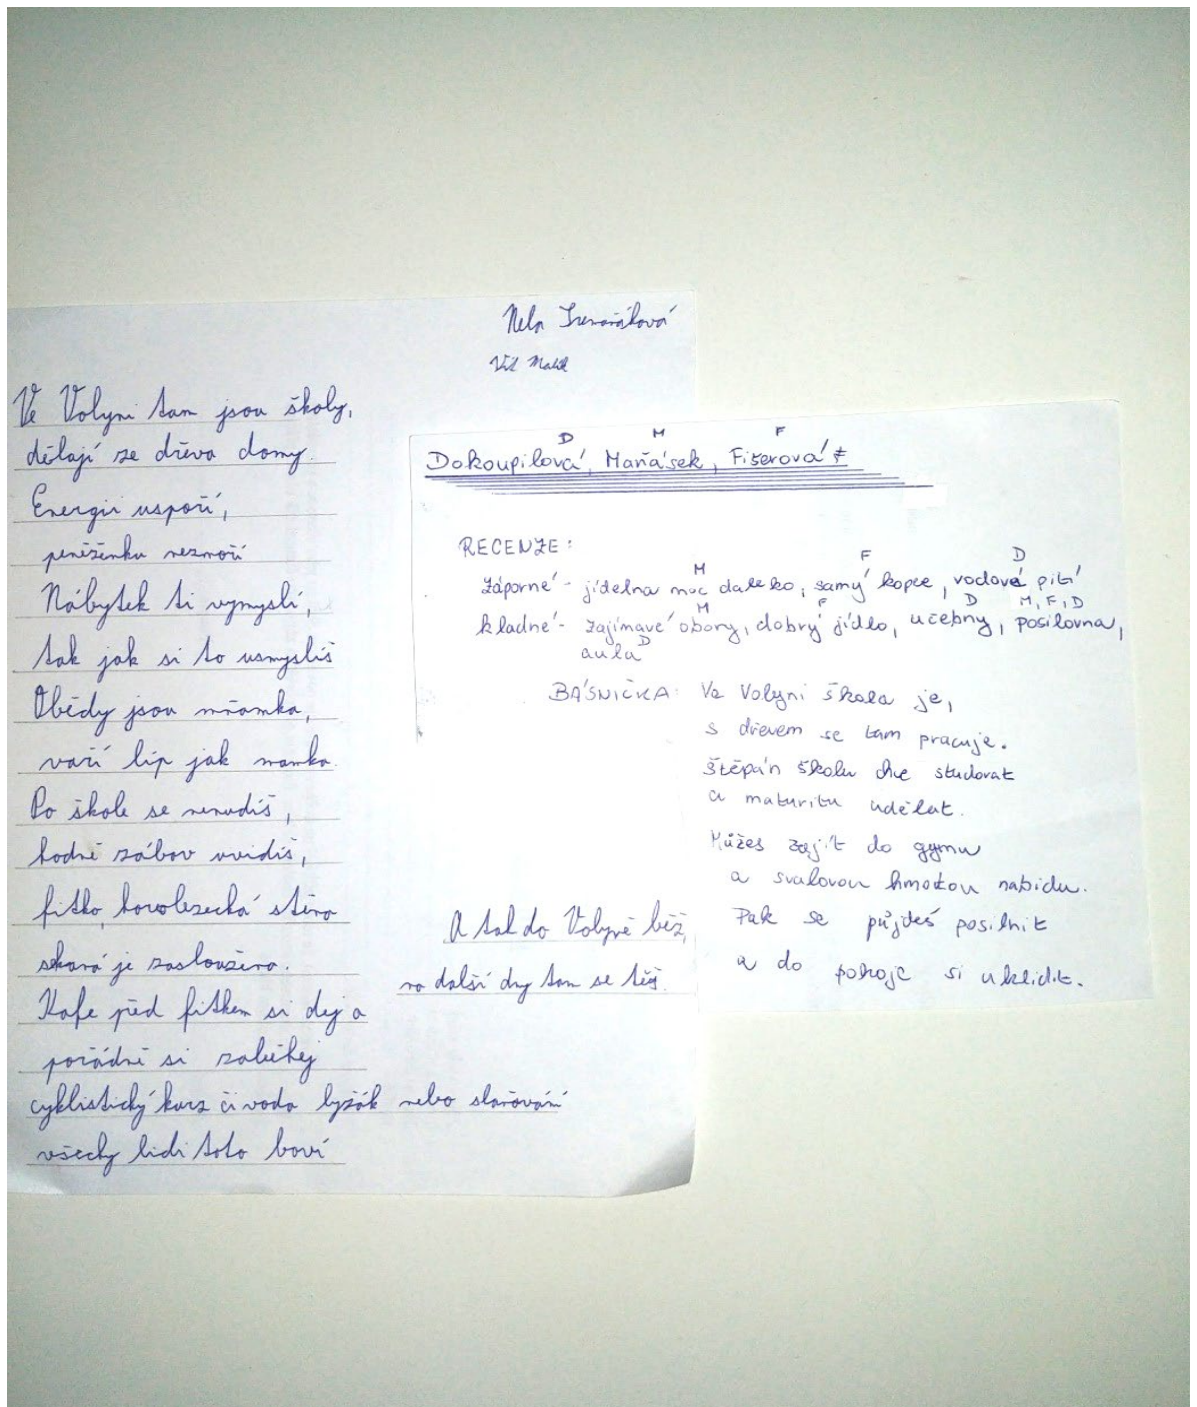 Nela
Vít
Ve Volyni tam jsou školy,
dělají ze dřeva domy.
Energii uspoří,
peněženku nezmoří
Nábytek ti vymyslí,
tak jak si to usmyslíš
Obědy jsou mňamka,
vaří líp jak mamka.
Po škole se nenudíš,
hodně zábav uvidíš,
fitko, horolezecká stěna
skvrá je zasloužena.
Kafe před fitkem si dej a
pořádně si zaběhej
cyklistický kurz či voda lyžák nebo slaňování
všechy lidi toto baví
A tak do Volyně běž,
na další dny tam se těš.
D M F
Dokoupilová, Maňásek, Fišerová
RECENZE:
M F D
Záporné - jídelna moc daleko, samý kopec, vodové pití
M F D M, F, D
kladné - zajímavé obory, dobrý jídlo, učebny, posilovna,
aula D
BÁSNIČKA: Ve Volyni škola je,
s dřevem se tam pracuje.
Štěpán školu chce studovat
a maturitu udělat.
Můžeš zajít do gymu
a svalovou hmotou nabídu.
Pak se půjdeš posilnit
a do pokoje si uklidit.